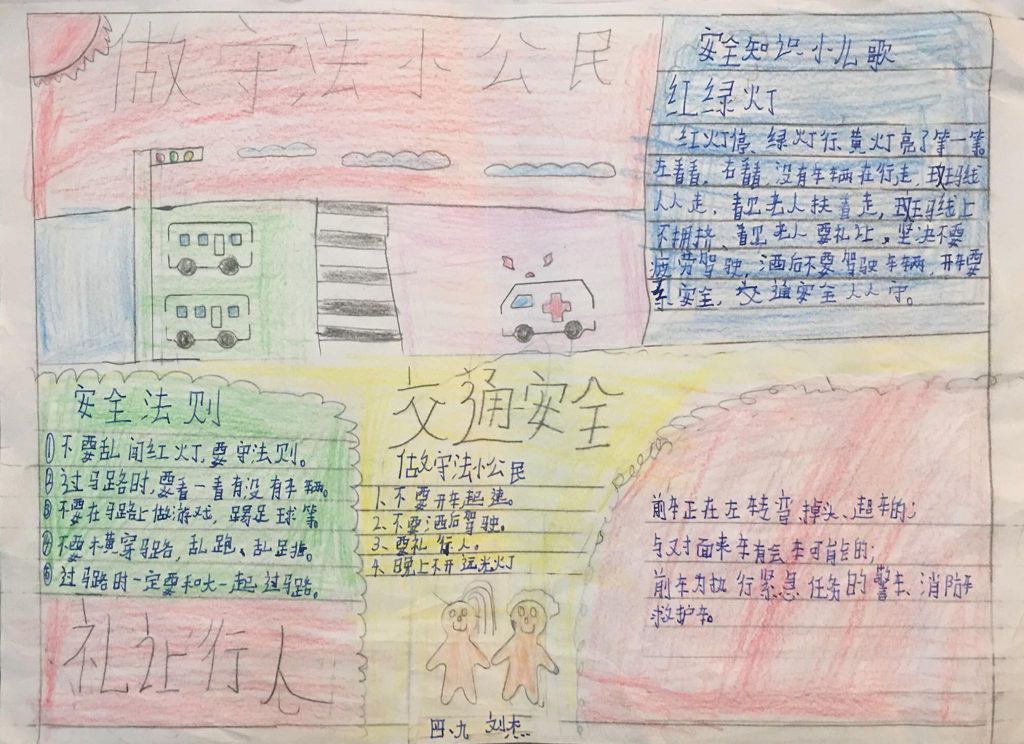 做守法小公民
安全知识小儿歌
红绿灯
红灯停、绿灯行,黄灯亮了等一等
左看看,右看看,没有车辆在行走,斑马线
人人走,看见老人扶着走,斑马线上
不拥挤、看见老人要礼让。坚决不要
疲劳驾驶,酒后不要驾驶车辆,开车要
系安全,交通安全人人守。
安全法则
①不要乱闯红灯,要守法则。
②过马路时,要看一看有没有车辆。
③不要在马路上做游戏,踢足球等
④不要横穿马路,乱跑、乱
⑤过马路时一定要和大一起过马路。
礼让行人
交通安全
做守法小公民
1、不要开车超速。
2、不要酒后驾驶。
3、要礼行人。
4、晚上不开远光灯
前车正在左转弯、掉头、超车的;
与对面来车有会车可能的;
前车为执行紧急任务的警车、消防车
救护车。
四、九 刘杰